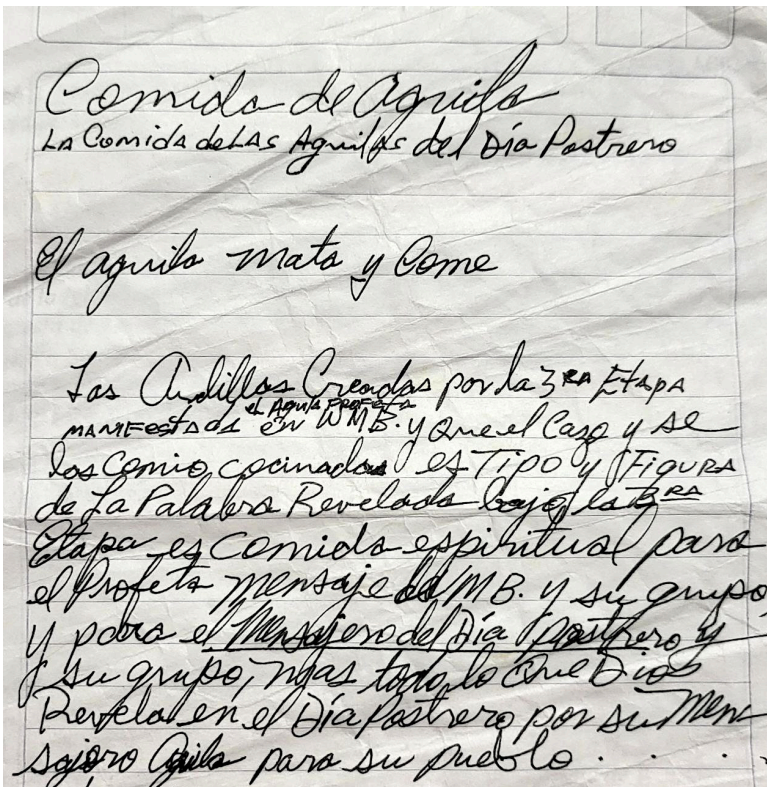 Comida de aguila
LA Comida de LAS Aguilas del Día Postrero
El aguila mata y Come
Las Ardillas Creadas por la 3RA Etapa
el Aguila PROFETA
MANIFESTADA en WMB. y que el Cazo y se
las comio, cocinadas es TIPO y FIGURA
de La Palabra Revelada bajo la 3RA
Etapa es comida espiritual para
el Profeta mensaje WMB. y su grupo,
y para el Mensajero del Día postrero y
su grupo, mas todo lo que Dios
Revela en el Día Postrero por su Men
sajero Aguila para su pueblo . . . .